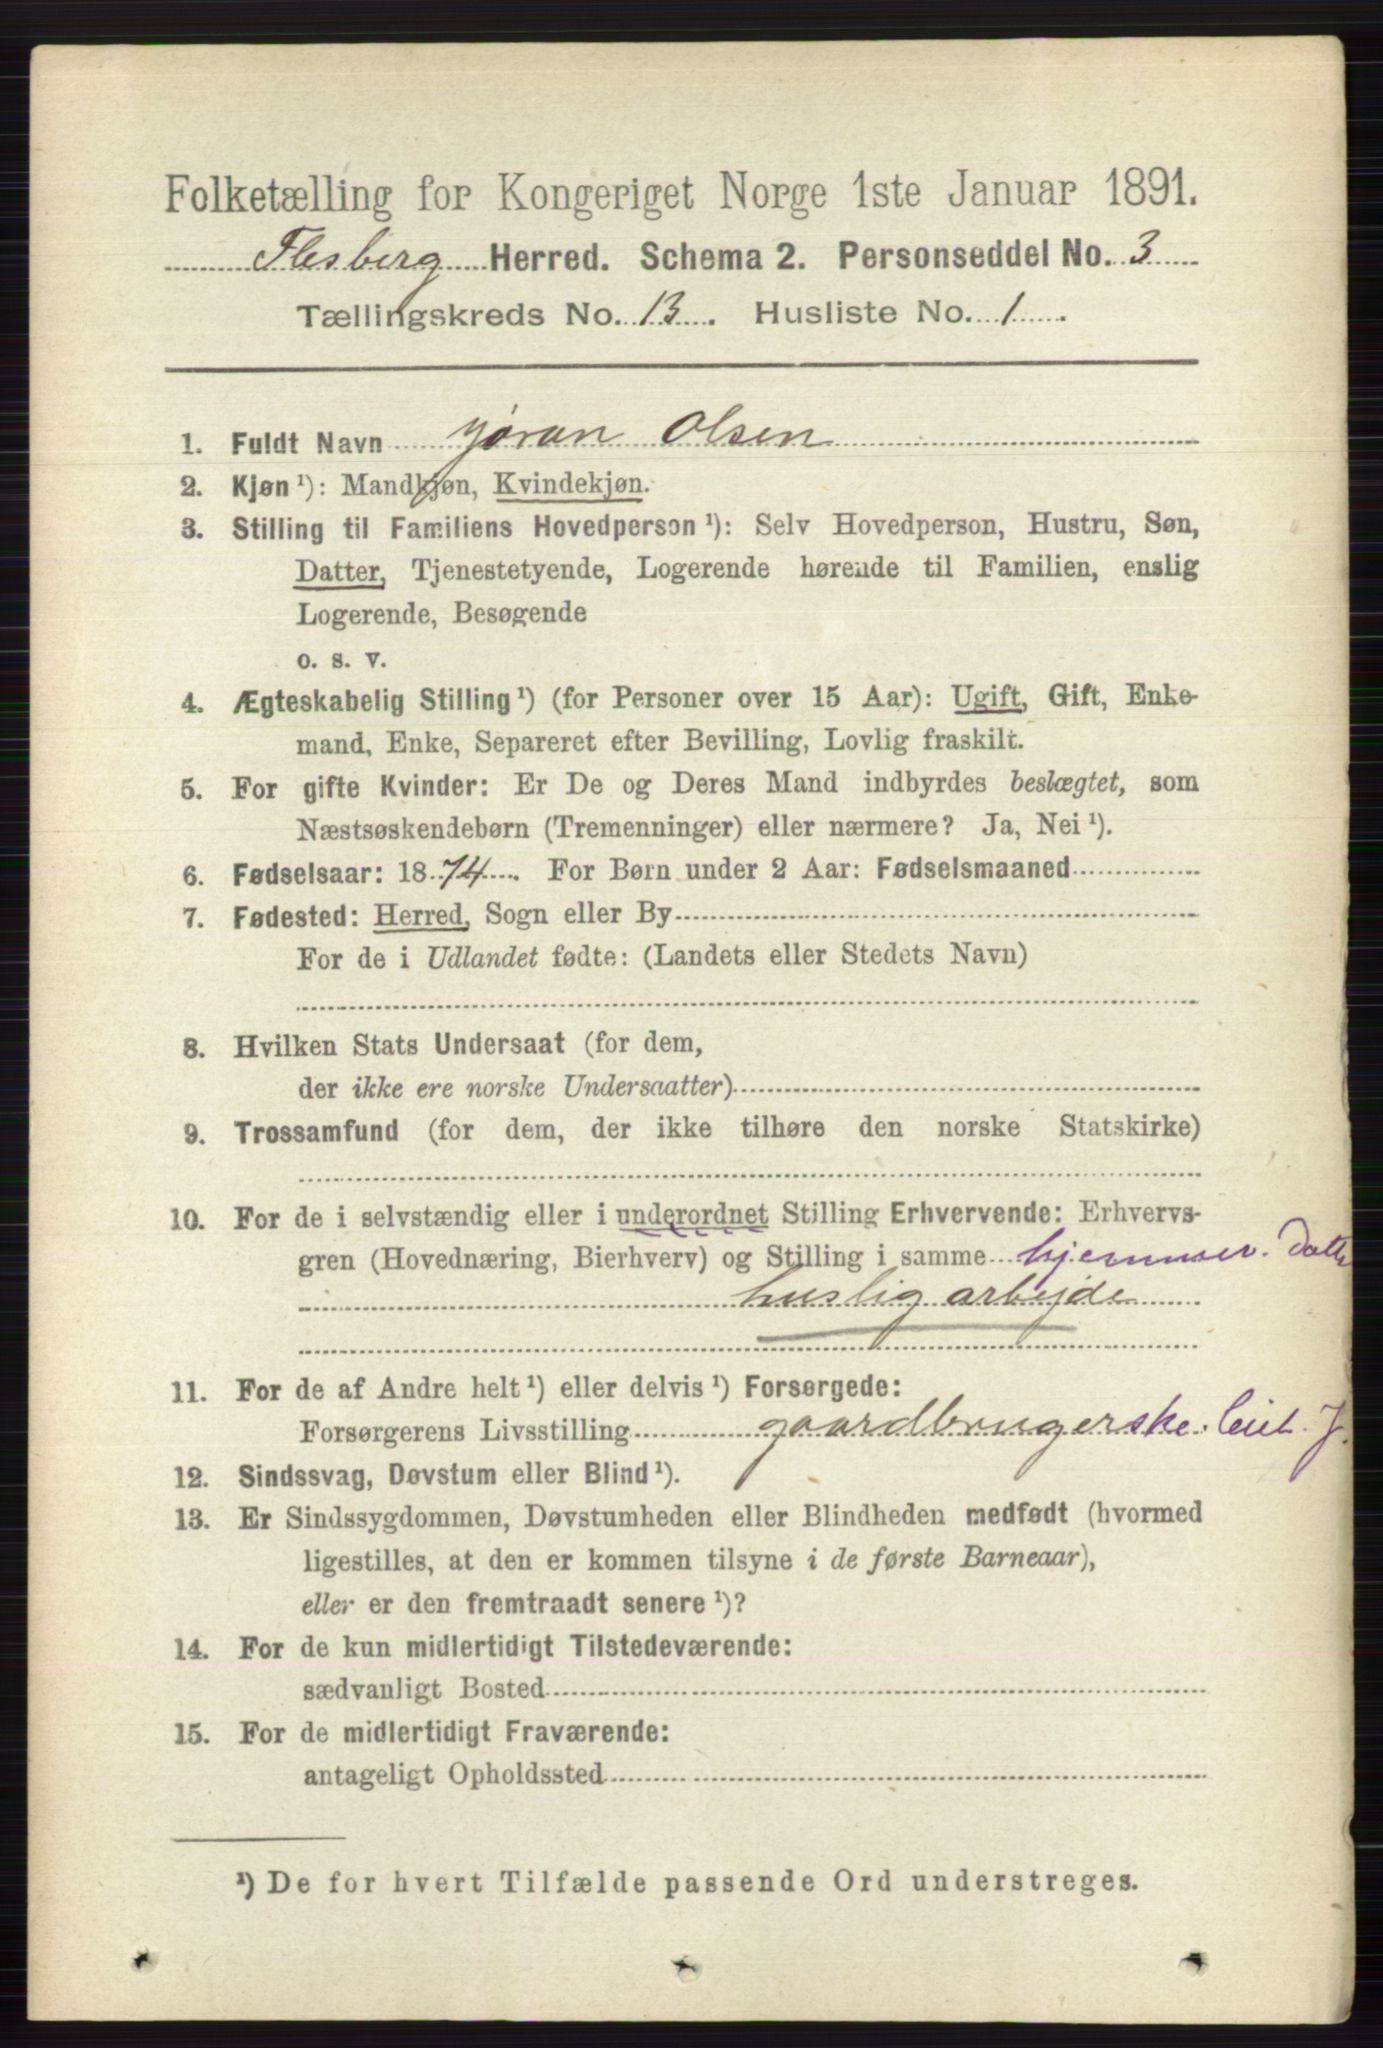 Folketælling for Kongeriget Norge 1ste Januar 1891.
Flesberg Herred. Schema 2. Personseddel No. 3
Tællingskreds No. 13. Husliste No. 1.
1. Fuldt Navn Jøran Olsen
2. Kjøn ¹): Mandkjøn, Kvindekjøn.
3. Stilling til Familiens Hovedperson ¹): Selv Hovedperson, Hustru, Søn,
Datter, Tjenestetyende, Logerende hørende til Familien, enslig
Logerende, Besøgende
o. s. v.
4. Ægteskabelig Stilling ¹) (for Personer over 15 Aar): Ugift, Gift, Enke-
mand, Enke, Separeret efter Bevilling, Lovlig fraskilt.
5. For gifte Kvinder: Er De og Deres Mand indbyrdes beslægtet, som
Næstsøskendebørn (Tremenninger) eller nærmere? Ja, Nei ¹).
6. Fødselsaar: 1874. For Børn under 2 Aar: Fødselsmaaned
7. Fødested: Herred, Sogn eller By
For de i Udlandet fødte: (Landets eller Stedets Navn)
8. Hvilken Stats Undersaat (for dem,
der ikke ere norske Undersaatter)
9. Trossamfund (for dem, der ikke tilhøre den norske Statskirke)
10. For de i selvstændig eller i underordnet Stilling Erhvervende: Erhvervs-
gren (Hovednæring, Bierhverv) og Stilling i samme hjemmev. Datt
huslig arbejde
11. For de af Andre helt ¹) eller delvis ¹) Forsørgede:
Forsørgerens Livsstilling gaardbrugerske.
12. Sindssvag, Døvstum eller Blind ¹).
13. Er Sindssygdommen, Døvstumheden eller Blindheden medfødt (hvormed
ligestilles, at den er kommen tilsyne i de første Barneaar),
eller er den fremtraadt senere ¹)?
14. For de kun midlertidigt Tilstedeværende:
sædvanligt Bosted
15. For de midlertidigt Fraværende:
antageligt Opholdssted
¹) De for hvert Tilfælde passende Ord understreges.